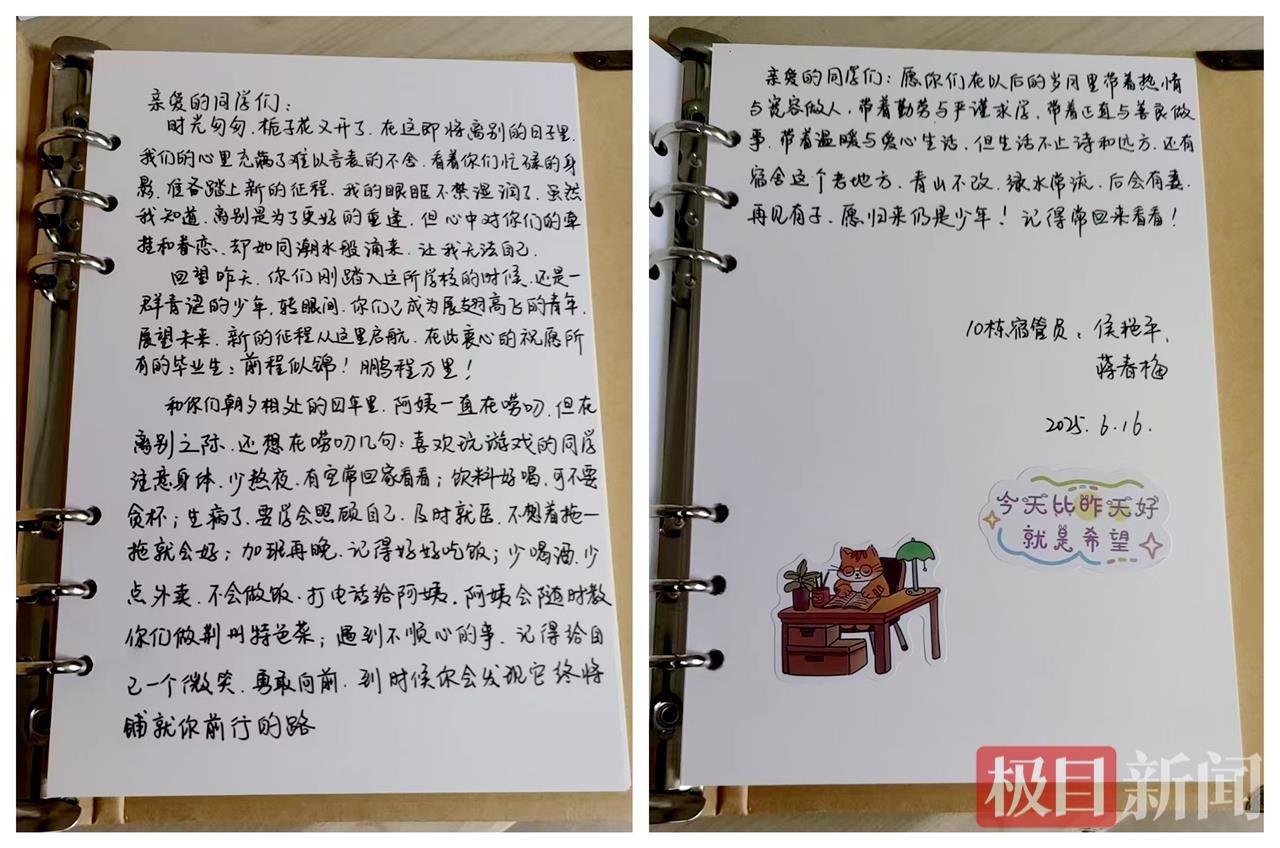 亲爱的同学们：
时光匆匆.栀子花又开了.在这即将离别的日子里.
我们的心里充满了难以言表的不舍.看着你们忙碌的身
影.准备踏上新的征程.我的眼眶不禁湿润了.虽然
我知道.离别是为了更好的重逢.但心中对你们的牵
挂和眷恋.却如同潮水般涌来.让我无法自已.
回望昨天.你们刚踏入这所学校的时候.还是一
群青涩的少年.转眼间.你们已成为展翅高飞的青年.
展望未来.新的征程从这里启航.在此衷心的祝愿所
有的毕业生：前程似锦！鹏程万里！
和你们朝夕相处的四年里.阿姨一直在唠叨.但在
离别之际.还想在唠叨几句：喜欢玩游戏的同学
注意身体.少熬夜.有空常回家看看；饮料好喝.可不要
贪杯；生病了.要学会照顾自己.及时就医.不想着拖一
拖就会好；加班再晚.记得好好吃饭；少喝酒.少
点外卖.不会做饭.打电话给阿姨.阿姨会随时教
你们做荆州特色菜；遇到不顺心的事.记得给自
己一个微笑.勇敢向前.到时候你会发现它终将
铺就你前行的路
亲爱的同学们：愿你们在以后的岁月里带着热情
与宽容做人.带着勤劳与严谨求学.带着正直与善良做
事.带着温暖与爱心生活.但生活不止诗和远方.还有
宿舍这个老地方.青山不改.绿水常流.后会有期
再见有子.愿归来仍是少年！记得常回来看看！
10栋宿管员：侯艳平.
蒋春梅
2025.6.16.
今天比昨天好
就是希望
极目新闻